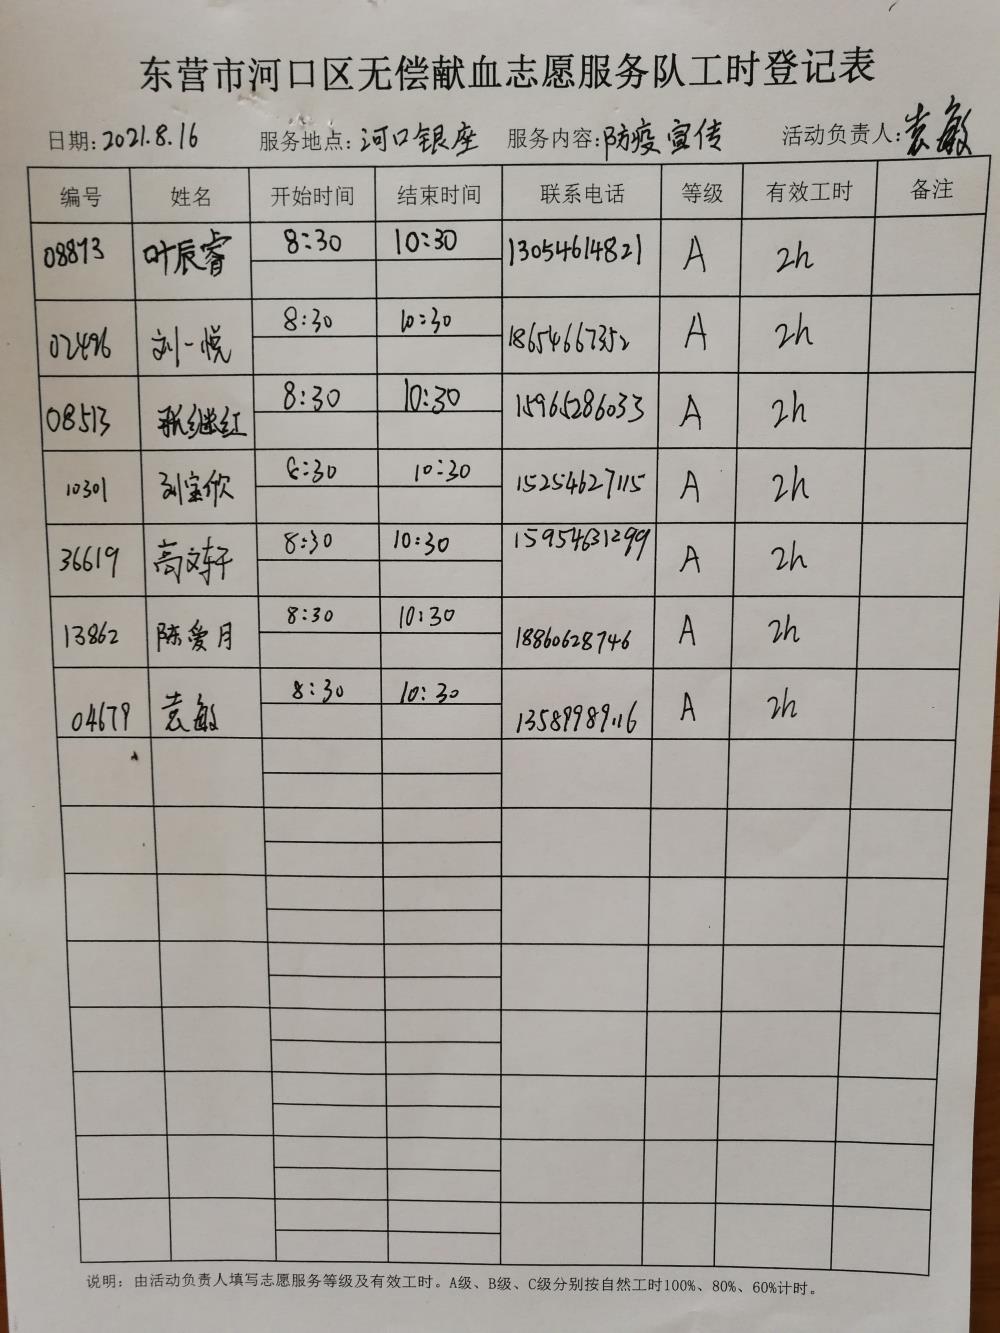 东营市河口区无偿献血志愿服务队工时登记表
日期:2021.8.16 服务地点:河口银座 服务内容:防疫宣传 活动负责人:袁敏
编号 姓名 开始时间 结束时间 联系电话 等级 有效工时 备注
08873 叶辰睿 8:30 10:30 13054614821 A 2h
02496 刘一悦 8:30 10:30 18654667352 A 2h
08513 张继红 8:30 10:30 15965286033 A 2h
10301 刘宝欣 8:30 10:30 15254627115 A 2h
36619 高文轩 8:30 10:30 15954631299 A 2h
13862 陈爱月 8:30 10:30 18860628746 A 2h
04679 袁敏 8:30 10:30 13589989116 A 2h
说明:由活动负责人填写志愿服务等级及有效工时。A级、B级、C级分别按自然工时100%、80%、60%计时。